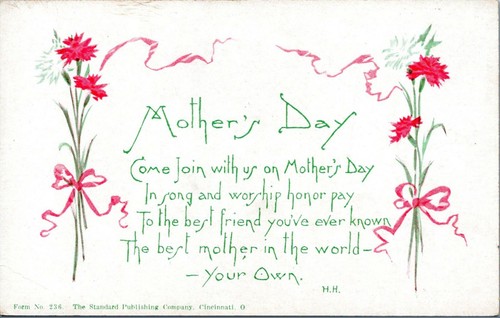 Mother's Day
Come Join with us on Mother's Day
In song and worship honor pay
To the best friend you've ever known
The best mother, in the world—
—Your Own.
H.H.
Form No. 236 The Standard Publishing Company, Cincinnati, O